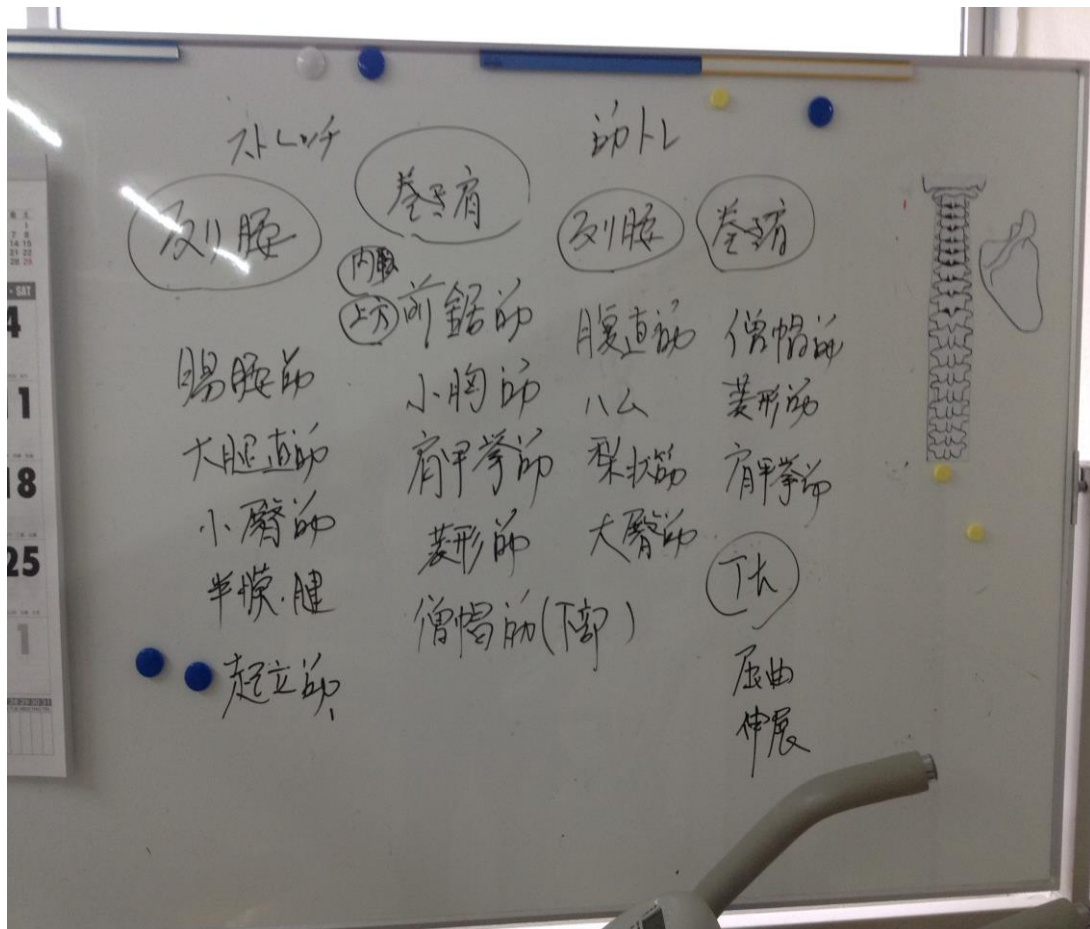 ストレッチ
反り腰
腸腰筋
大腿直筋
小臀筋
半膜.腱
起立筋
巻き肩
上方
前鋸筋
小胸筋
肩甲挙筋
菱形筋
僧帽筋(下部)
筋トレ
反り腰
腹直筋
ハム
梨状筋
大臀筋
巻き肩
僧帽筋
菱形筋
肩甲挙筋
屈曲
伸展
SAT
4
11
18
25
1